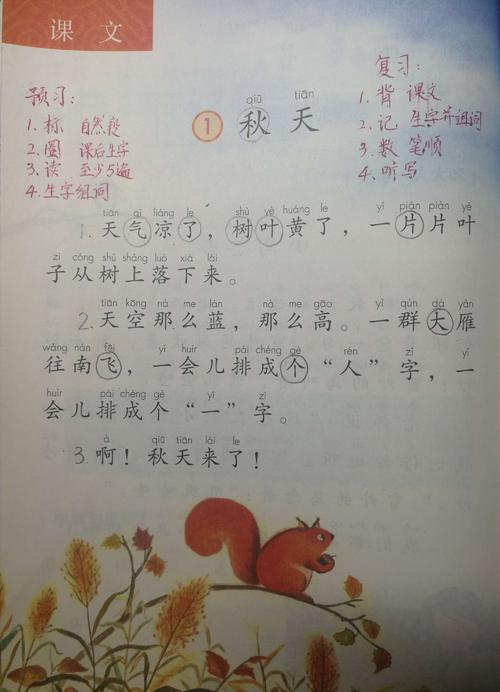 课文
预习：
1. 标 自然段
2. 圈 课后生字
3. 读 至少5遍
4. 生字组词
复习：
1. 背 课文
2. 记 生字并组词
3. 数 笔顺
4. 听写
qiū tiān
1 秋天
tiān qì liáng le shù yè huáng le yí piàn piàn yè
1. 天气凉了，树叶黄了，一片片叶
zi cóng shù shàng luò xià lái
子从树上落下来。
tiān kōng nà me lán nà me gāo yì qún dà yàn
2. 天空那么蓝，那么高。一群大雁
wǎng nán fēi yí huìr pái chéng gè rén zì yí
往南飞，一会儿排成个“人”字，一
huìr pái chéng gè yī zì
会儿排成个“一”字。
à qiū tiān lái le
3. 啊！秋天来了！